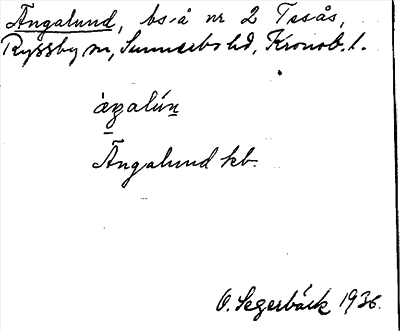 Ängalund, bs. å nr 2 Tesås,
Ryssby sn, Sunnerbo hd, Kronob. l.
Ängalund kb.
O. Segerbäck 1936.